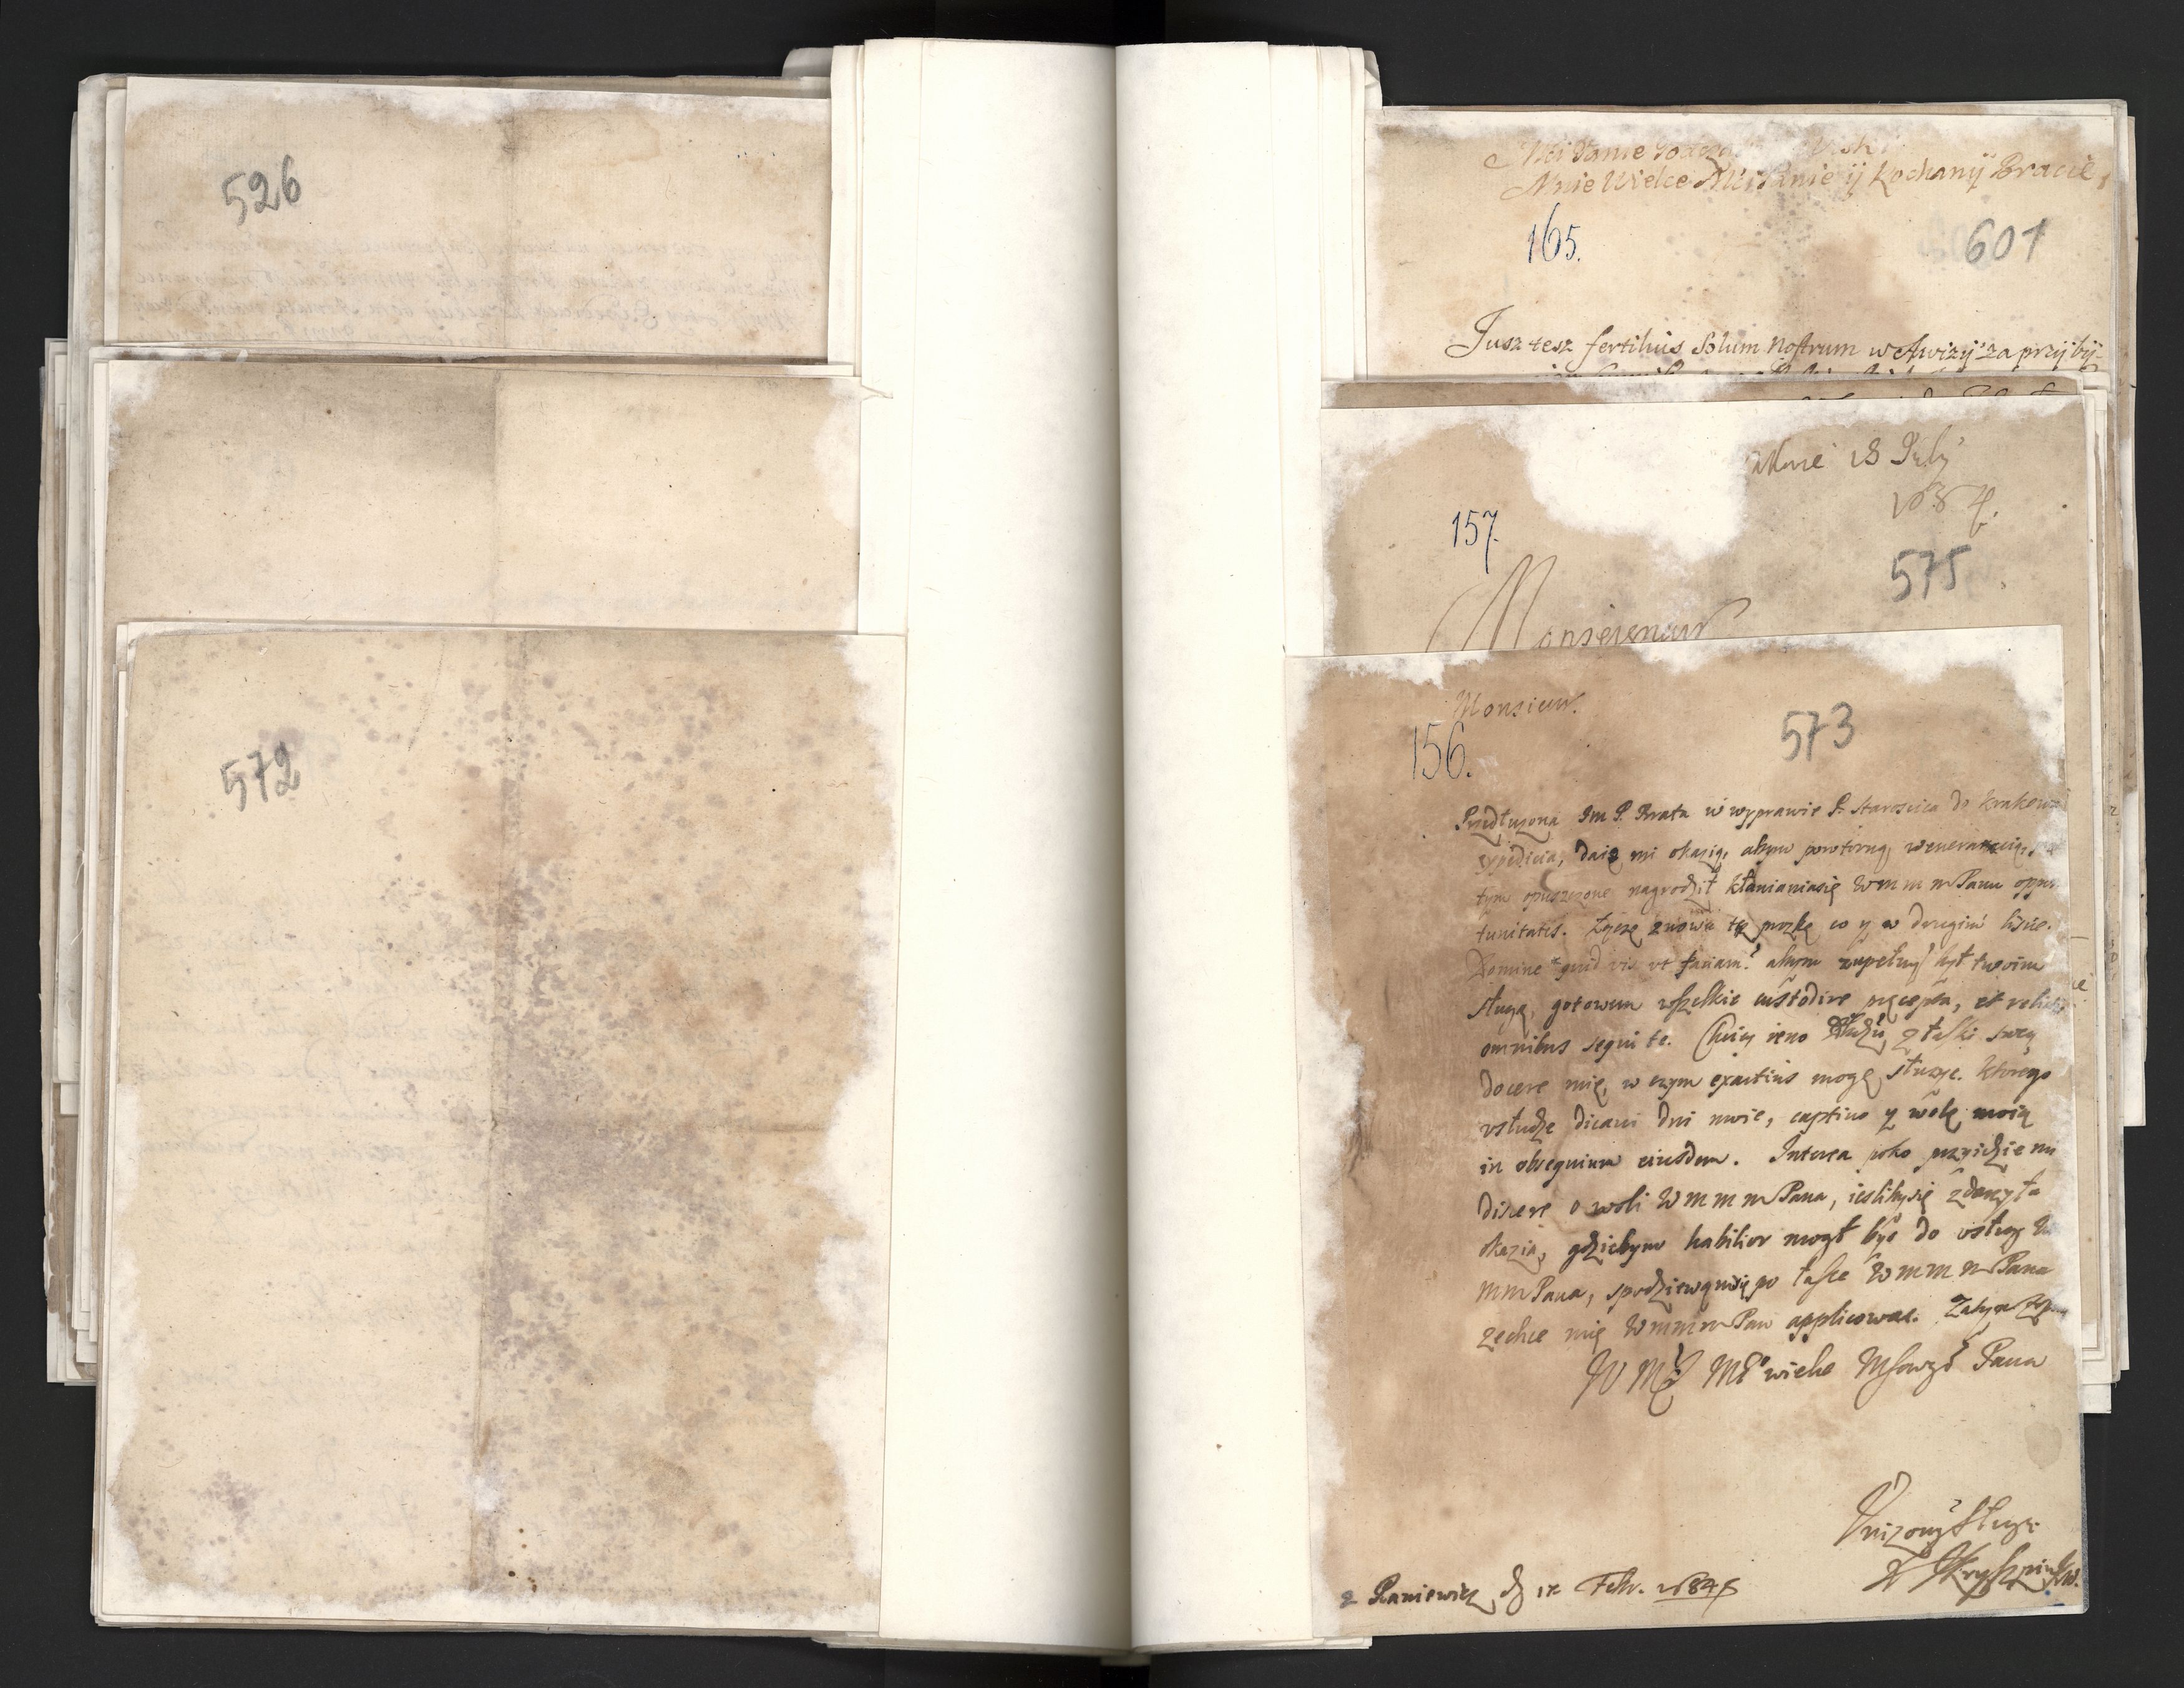 526
572
Mnie Wielce Mści Panie ij Kochanÿ Bracie,
165.
601
Jusz tesz fertilius Solum Nostrum w Awizÿ za przÿbÿ-
18 Julÿ
157.
575
Monseigneur
Monsieur.
573
156.
Przedłużona Im P. Brata w wyprawie P. Starościca do Krakowa
expedicia, daię mi okazią, abym powtorną weneracią,
tym opuszczone nagrodził kłaniania się W m m m Panu oppor
tunitates. Życzę znowu tę proźkę co y w drugim liście.
Domine quid vis vt faciam? abym zupełny był twoim
sługą, gotowem wszelkie custodire pręcepta, et relictis
omnibus sequi te. Chciey ieno z łaski swey
docere mię, w czym exactius mogę służyc. Ktorego
vsłudze dicavi dni moie, captivo y wolę moią
in obsequium eiusdem. Interea poko przyidzie mi
discere o woli W m m m Pana, iesliby się zdarzyła
okazia, gdziebym habilior mogł być do vsług W
m m Pana, spodziewam się po łasce W m m m Pana
zechce mię W m m m Pan applicowac. Zatym
W M M wielce Mſciwego Pana
Vniżony Sługa
Kryszpin
z Raniewicz d 12 Febr. 1684